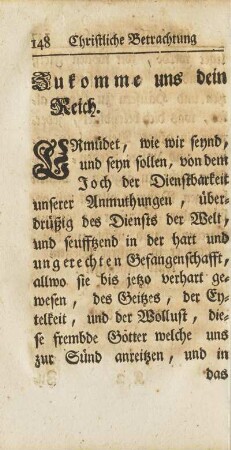 148 Christliche Betrachtung
Zukomme uns dein
Reich.
ERmüdet, wie wir seynd,
und seyn sollen, von dem
Joch der Dienstbarkeit
unserer Anmuthungen, über-
drüßig des Diensts der Welt,
und seufftzend in der hart und
ungerechten Gefangenschafft,
allwo sie bis jetzo verhart ge-
wesen, des Geitzes, der Ey-
telkeit, und der Wollust, die-
se frembde Götter welche uns
zur Sünd anreitzen, und in
das